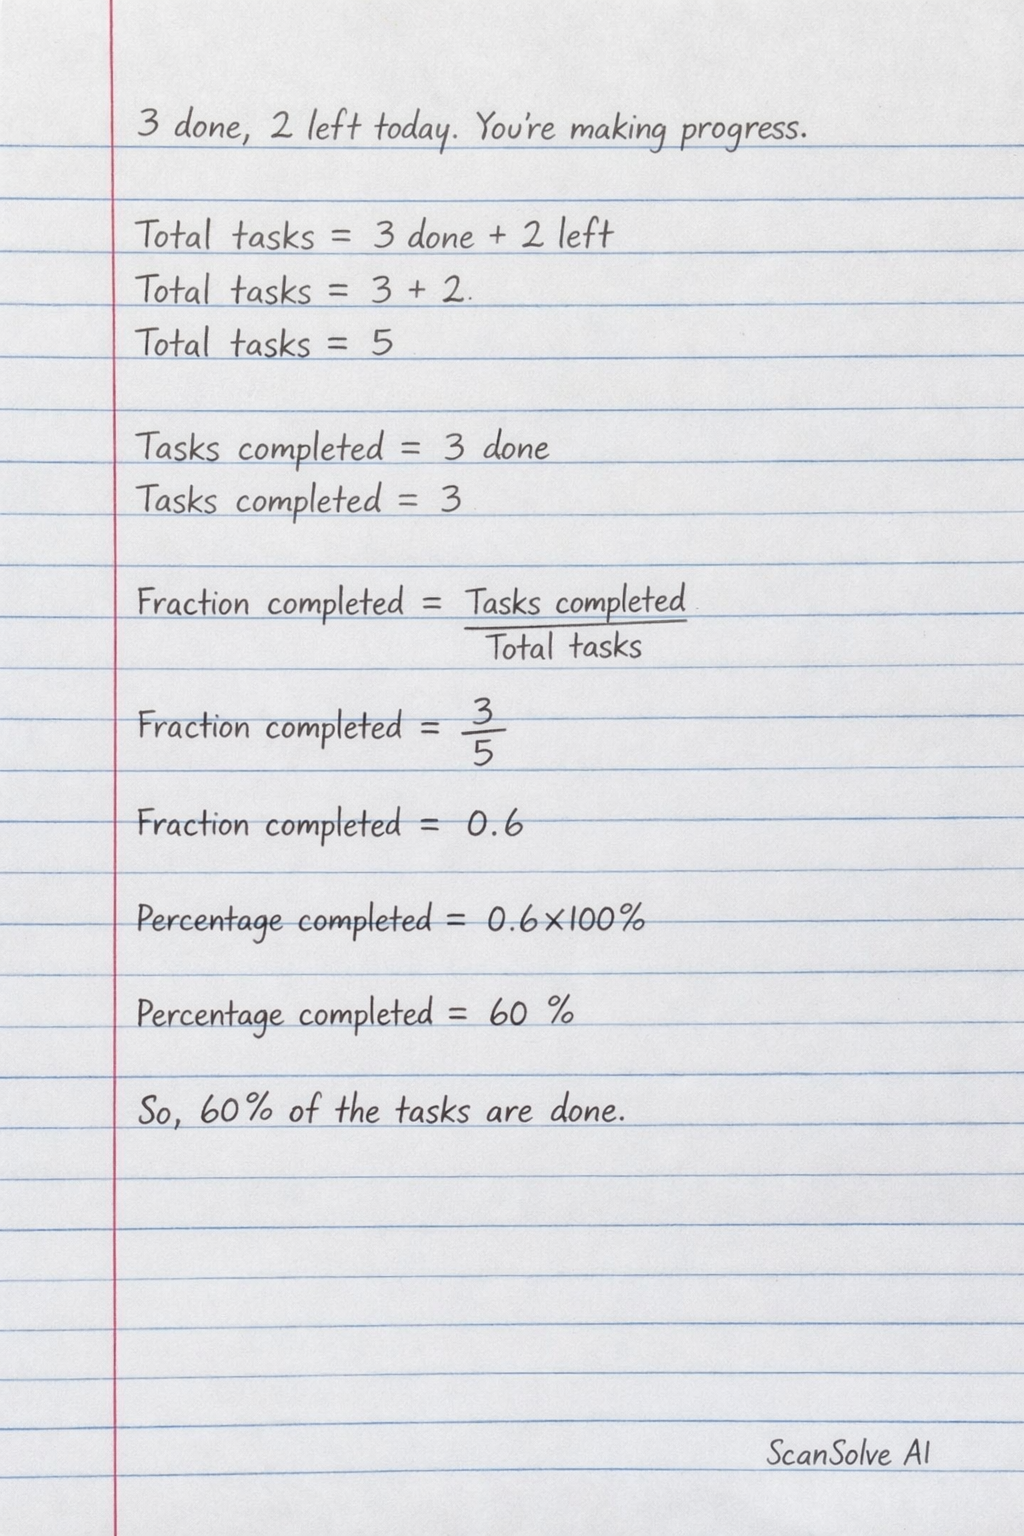 3 done, 2 left today. You're making progress.
Total tasks = 3 done + 2 left
Total tasks = 3 + 2.
Total tasks = 5
Tasks completed = 3 done
Tasks completed = 3
Fraction completed = Tasks completed
Total tasks
Fraction completed = 3
5
Fraction completed = 0.6
Percentage completed = 0.6×100%
Percentage completed = 60 %
So, 60% of the tasks are done.
ScanSolve AI